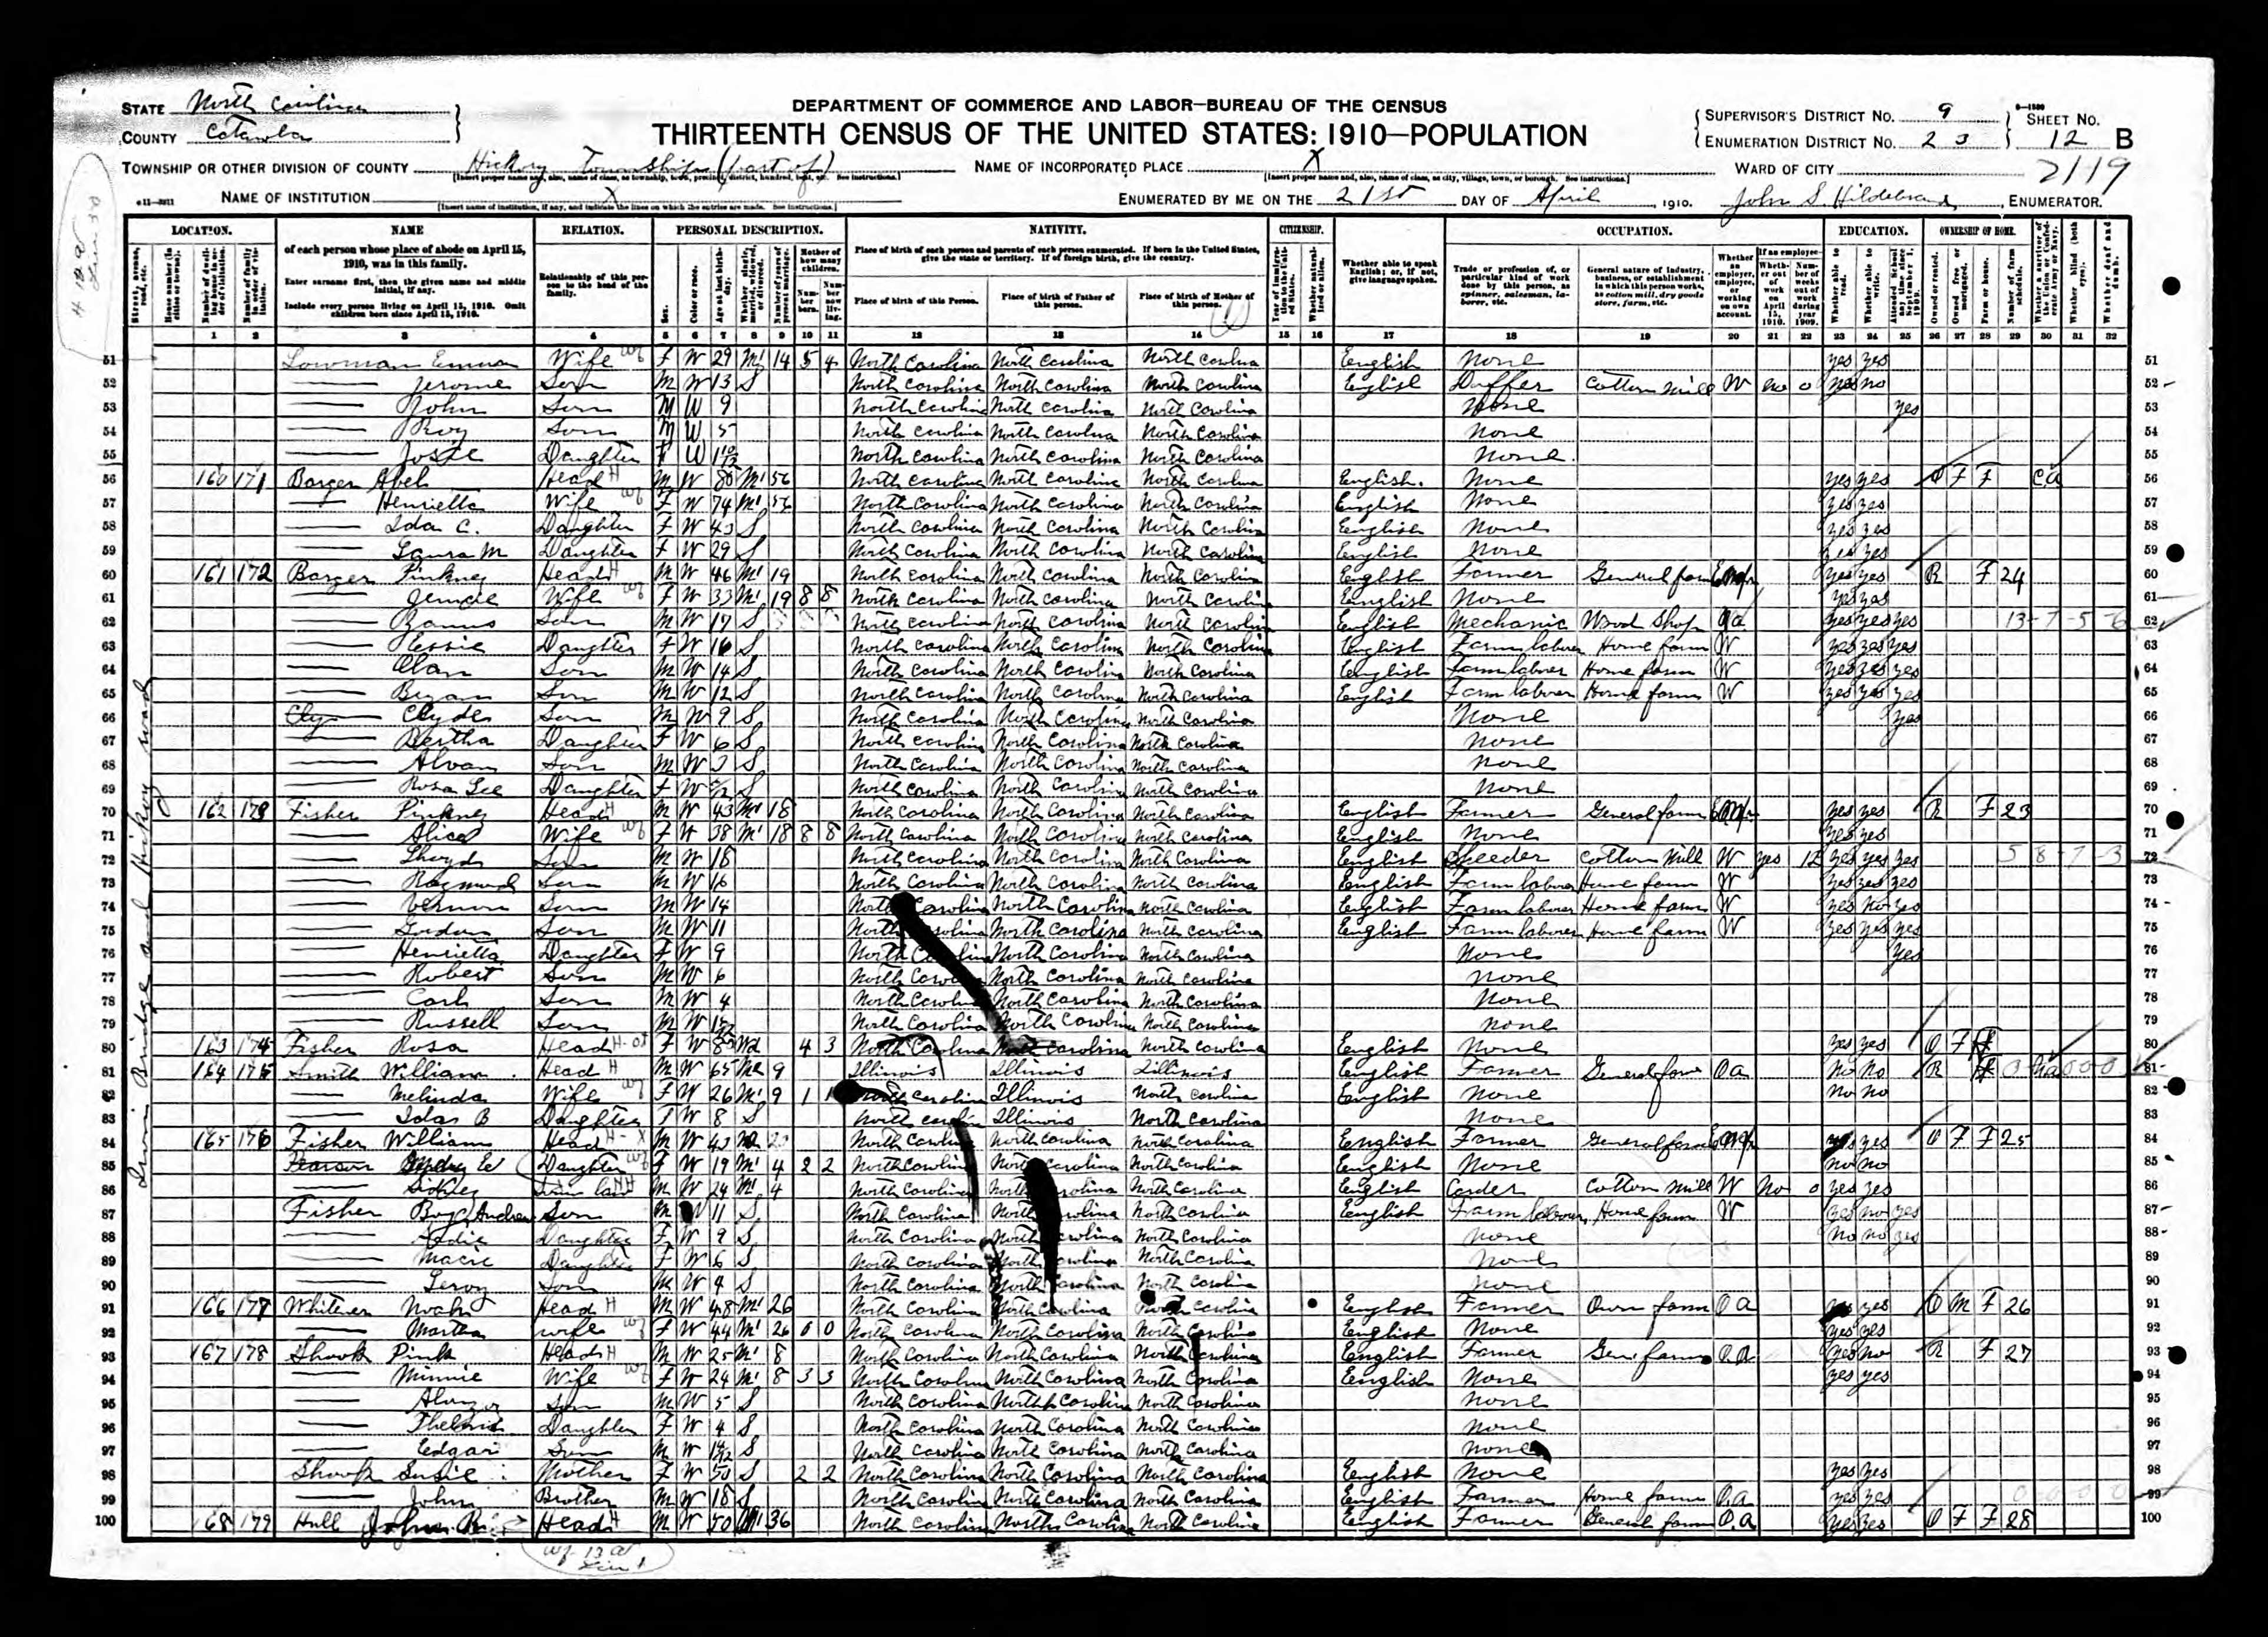 STATE North Carolina
COUNTY Catawba
DEPARTMENT OF COMMERCE AND LABOR—BUREAU OF THE CENSUS
THIRTEENTH CENSUS OF THE UNITED STATES: 1910—POPULATION
SUPERVISOR'S DISTRICT No. 9
ENUMERATION DISTRICT No. 23
SHEET No. 12 B
2119
TOWNSHIP OR OTHER DIVISION OF COUNTY Hickory Township (part of)
NAME OF INCORPORATED PLACE X
WARD OF CITY
NAME OF INSTITUTION X
ENUMERATED BY ME ON THE 21st DAY OF April, 1910. John S. Hildebrand, ENUMERATOR.
LOCATION. NAME RELATION. PERSONAL DESCRIPTION. NATIVITY. CITIZENSHIP. OCCUPATION. EDUCATION. OWNERSHIP OF HOME.
of each person whose place of abode on April 15, 1910, was in this family.
Enter surname first, then the given name and middle initial, if any.
Include every person living on April 15, 1910. Omit children born since April 15, 1910.
Relationship of this person to the head of the family.
Place of birth of each person and parents of each person enumerated. If born in the United States, give the state or territory. If of foreign birth, give the country.
Place of birth of this Person. Place of birth of Father of this person. Place of birth of Mother of this person.
Whether able to speak English; or, if not, give language spoken.
Trade or profession of, or particular kind of work done by this person, as spinner, salesman, laborer, etc.
General nature of industry, business, or establishment in which this person works, as cotton mill, dry goods store, farm, etc.
1 2 3 4 5 6 7 8 9 10 11 12 13 14 15 16 17 18 19 20 21 22 23 24 25 26 27 28 29 30 31 32
51 Lowman Emma Wife F W 29 M1 14 5 4 North Carolina North Carolina North Carolina English None yes yes 51
52 Jerome Son M W 13 S North Carolina North Carolina North Carolina English Doffer Cotton Mill W no 0 no 52
53 John Son M W 9 North Carolina North Carolina North Carolina None yes 53
54 Roy Son M W 5 North Carolina North Carolina North Carolina None 54
55 Josie Daughter F W 1 10/12 North Carolina North Carolina North Carolina None 55
56 160 171 Barger Abel Head M W 80 M1 56 North Carolina North Carolina North Carolina English None yes yes O F F CA 56
57 Henrietta Wife F W 74 M1 56 North Carolina North Carolina North Carolina English None yes yes 57
58 Ida C. Daughter F W 43 S North Carolina North Carolina North Carolina English None yes yes 58
59 Laura M Daughter F W 29 S North Carolina North Carolina North Carolina English None yes yes 59
60 161 172 Barger Pinkney Head M W 46 M1 19 North Carolina North Carolina North Carolina English Farmer General farm Emp yes yes R F 24 60
61 Wife F W 33 M1 19 8 8 North Carolina North Carolina North Carolina English None yes yes 61
62 Son M W 17 S North Carolina North Carolina North Carolina English Mechanic Wood Shop OA yes yes yes 13-7-5-6 62
63 Daughter F W 16 S North Carolina North Carolina North Carolina English Farm laborer Home farm W yes yes yes 63
64 Son M W 14 S North Carolina North Carolina North Carolina English Farm laborer Home farm W yes yes yes 64
65 Son M W 12 S North Carolina North Carolina North Carolina English Farm laborer Home farm W yes yes yes 65
66 Clyde Son M W 9 S North Carolina North Carolina North Carolina None yes 66
67 Bertha Daughter F W 6 S North Carolina North Carolina North Carolina None 67
68 Alvan Son M W 3 S North Carolina North Carolina North Carolina None 68
69 Rosa Lee Daughter F W S North Carolina North Carolina North Carolina None 69
70 162 173 Fisher Pinkney Head M W 43 M1 18 North Carolina North Carolina North Carolina English Farmer General farm Emp yes yes R F 23 70
71 Alice Wife F W 38 M1 18 8 8 North Carolina North Carolina North Carolina English None yes yes 71
72 Lloyd Son M W 18 North Carolina North Carolina North Carolina English Cotton Mill W yes 12 yes yes yes 5 8-7-3 72
73 Raymond Son M W 16 North Carolina North Carolina North Carolina English Farm laborer Home farm W yes yes yes 73
74 Vernon Son M W 14 North Carolina North Carolina North Carolina English Farm laborer Home farm W yes no yes 74
75 Gordon Son M W 11 North Carolina North Carolina North Carolina English Farm laborer Home farm W yes yes yes 75
76 Henrietta Daughter F W 9 North Carolina North Carolina North Carolina None yes 76
77 Robert Son M W 6 North Carolina North Carolina North Carolina None 77
78 Carl Son M W 4 North Carolina North Carolina North Carolina None 78
79 Russell Son M W North Carolina North Carolina North Carolina None 79
80 163 174 Fisher Rosa Head F W Wd 4 3 North Carolina North Carolina North Carolina English None yes yes O F 80
81 164 175 Smith William Head M W 65 M2 9 Illinois Illinois Illinois English Farmer General farm OA No No R 81
82 Melinda Wife F W 26 M1 9 1 1 North Carolina Illinois North Carolina English None No No 82
83 Idas B Daughter F W 8 S North Carolina Illinois North Carolina None 83
84 165 176 Fisher William Head M W 43 North Carolina North Carolina North Carolina English Farmer General farm Emp yes O F F 25 84
85 Pearson Daughter F W 19 M1 4 2 2 North Carolina North Carolina North Carolina English None no no 85
86 Sidney Son in law M W 24 M1 4 North Carolina North Carolina North Carolina English Carder Cotton Mill W No 0 yes yes 86
87 Fisher Andrew Son M W 11 S North Carolina North Carolina North Carolina English Farm laborer Home farm W yes no yes 87
88 Daughter F W 9 S North Carolina North Carolina North Carolina None No no yes 88
89 Macie Daughter F W 6 S North Carolina North Carolina North Carolina None 89
90 Leroy Son M W 4 S North Carolina North Carolina North Carolina None 90
91 166 177 Whitener Noah Head M W 48 M1 26 North Carolina North Carolina North Carolina English Farmer Own farm OA yes O M F 26 91
92 Martha Wife F W 44 M1 26 0 0 North Carolina North Carolina North Carolina English None yes yes 92
93 167 178 Shook Pink Head M W 25 M1 8 North Carolina North Carolina North Carolina English Farmer Gen farm O.A yes no R F 27 93
94 Minnie Wife F W 24 M1 8 3 3 North Carolina North Carolina North Carolina English None yes yes 94
95 Son M W 5 S North Carolina North Carolina North Carolina None 95
96 Daughter F W 4 S North Carolina North Carolina North Carolina None 96
97 Edgar Son M W S North Carolina North Carolina North Carolina None 97
98 Shook Susie Mother F W 50 S 2 2 North Carolina North Carolina North Carolina English None yes yes 98
99 John Brother M W 18 S North Carolina North Carolina North Carolina English Farmer Home farm O.A yes yes 99
100 168 179 Hull John Head M W 50 M1 36 North Carolina North Carolina North Carolina English Farmer General farm O.A yes yes O F F 28 100